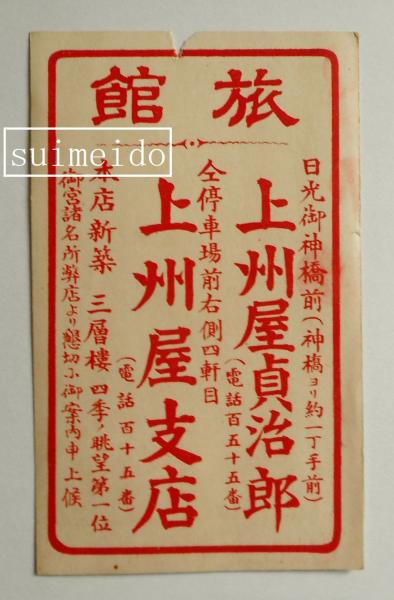 旅館
日光御神橋前(神橋ヨリ約一丁手前)
上州屋貞治郎
(電話百五十五番)
仝停車場前右側四軒目
上州屋支店
(電話百十五番)
本店新築 三層樓 四季ノ眺望第一位
御宮諸名所弊店より懇切ニ御案内申上候
suimeido